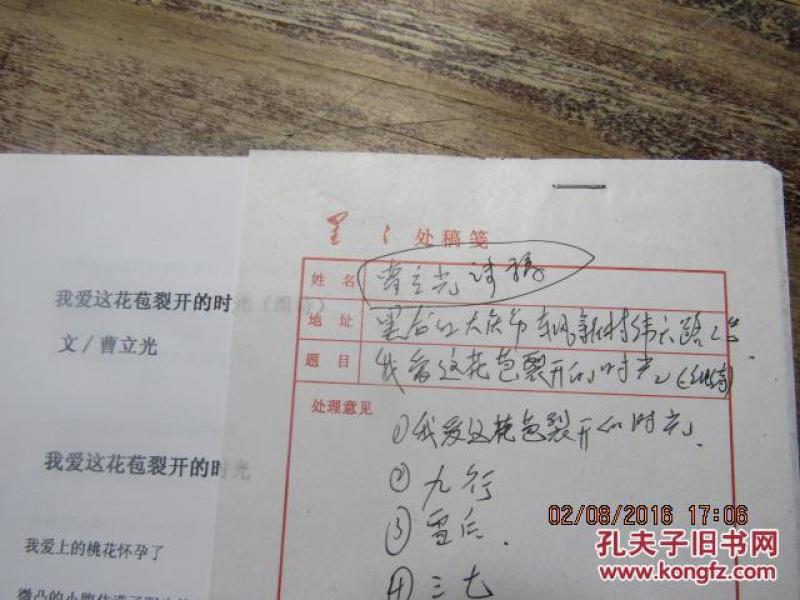 我爱这花苞裂开的时光（组诗）
文/曹立光
我爱这花苞裂开的时光
我爱上的桃花怀孕了
处稿笺
姓名 曹立光诗稿
地址 黑龙江大庆市东风新村纬六路2号
题目 我爱这花苞裂开的时光（组诗）
处理意见
①我爱这花苞裂开的时光.
②九行
③雪后.
④三七
02/08/2016 17:06
孔夫子旧书网
www.kongfz.com